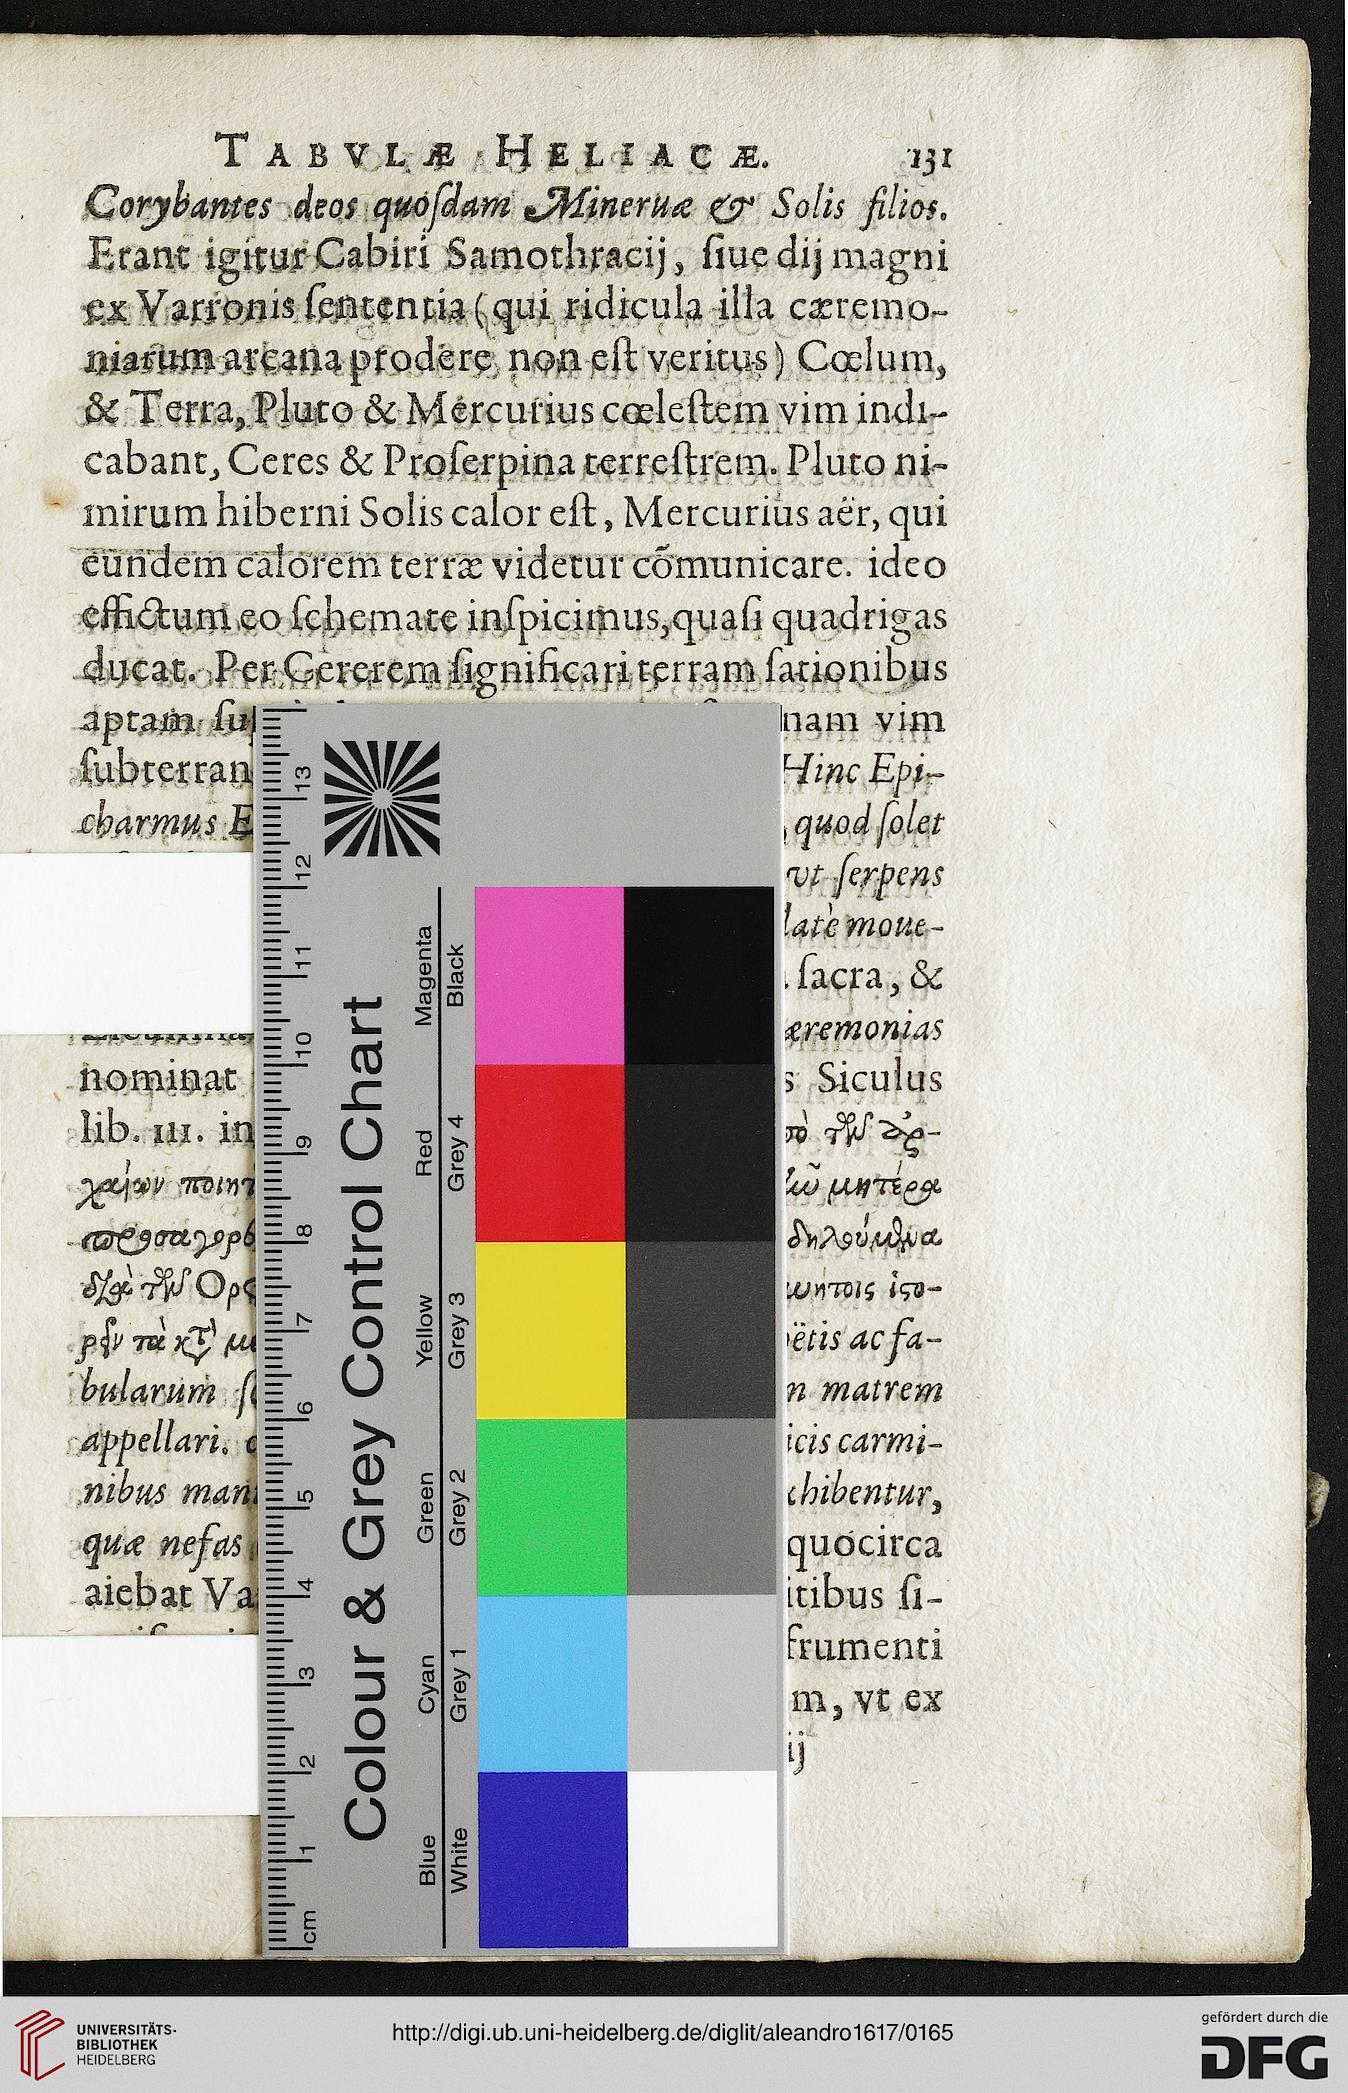 TABVLÆ HELIACÆ. 131
Corybantes deos quoſdam Mineruæ & Solis filios.
Erant igitur Cabiri Samothracij, ſiue dij magni
ex Varronis ſententia (qui ridicula illa cæremo-
niarum arcana prodere non eſt veritus) Cœlum,
& Terra, Pluto & Mercurius cœleſtem vim indi-
cabant, Ceres & Proſerpina terreſtrem. Pluto ni-
mirum hiberni Solis calor eſt, Mercurius aër, qui
eundem calorem terræ videtur cõmunicare. ideo
effictum eo ſchemate inſpicimus, quaſi quadrigas
ducat. Per Cererem ſignificari terram ſationibus
aptam nam vim
ſubterran Hinc Epi-
charmus E quod ſolet
vt ſerpens
latè moue-
ſacra, &
æremonias
nominat s Siculus
lib. III. in
χαίων ποιητ μητέρα
δηλούμϑμα
Ορφ
bularum ëtis ac fa-
n matrem
appellari. icis carmi-
nibus mani hibentur,
quæ nefas quocirca
aiebat Va itibus ſi-
frumenti
m, vt ex
ij
13
12
11
10
9
8
7
6
5
4
3
2
1
cm
Colour & Grey Control Chart
Magenta Black
Red Grey 4
Yellow Grey 3
Green Grey 2
Cyan Grey 1
Blue White
UNIVERSITÄTS-
BIBLIOTHEK
HEIDELBERG
http://digi.ub.uni-heidelberg.de/diglit/aleandro1617/0165
gefördert durch die
DFG